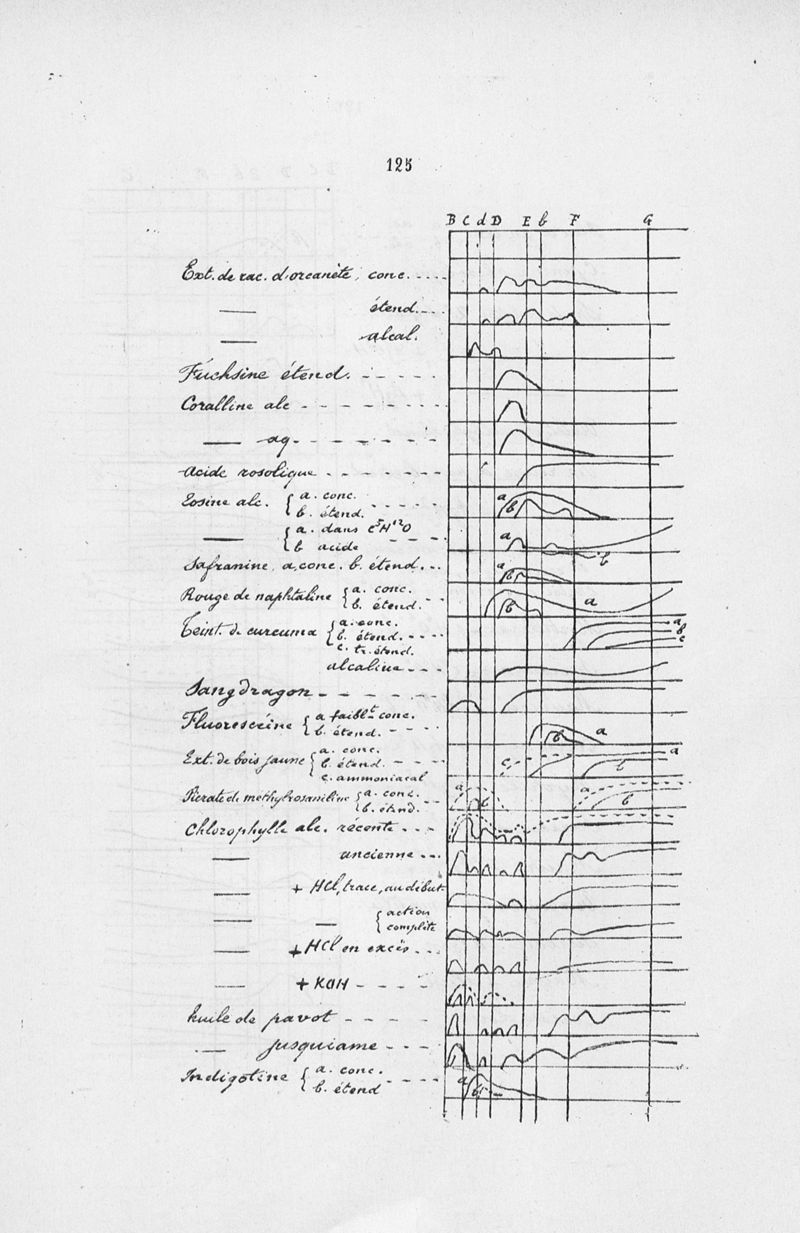 125
B C d D E b F G
Ext. de rac. d'orcanète, conc.
étend.
alcal.
Fuchsine étend.
Coralline alc
aq.
Acide rosolique
Eosine alc. { a. conc.
b. étend.
a
b
{ a. dans C⁵H¹²O
b acide
a
b
Safranine, a, conc. b. étend.
a
b
Rouge de naphtaline { a. conc.
b. étend.
b
a
Teint. de curcuma { a. conc.
b. étend.
c. tr. étend.
a
b
c
alcaline
Sangdragon
Fluorescéine { a faiblt conc.
b. étend.
b
a
Ext. de bois jaune { a. conc.
b. étend.
c. ammoniacal
c
b
a
Picrate de méthylrosaniline { a. conc.
b. étend.
a
b
a
b
Chlorophylle alc. récente
ancienne
+ HCl, trace, au début
{ action
complète
+ HCl en excès
+ KOH
huile de pavot
jusquiame
Indigotine { a. conc.
b. étend
a
b